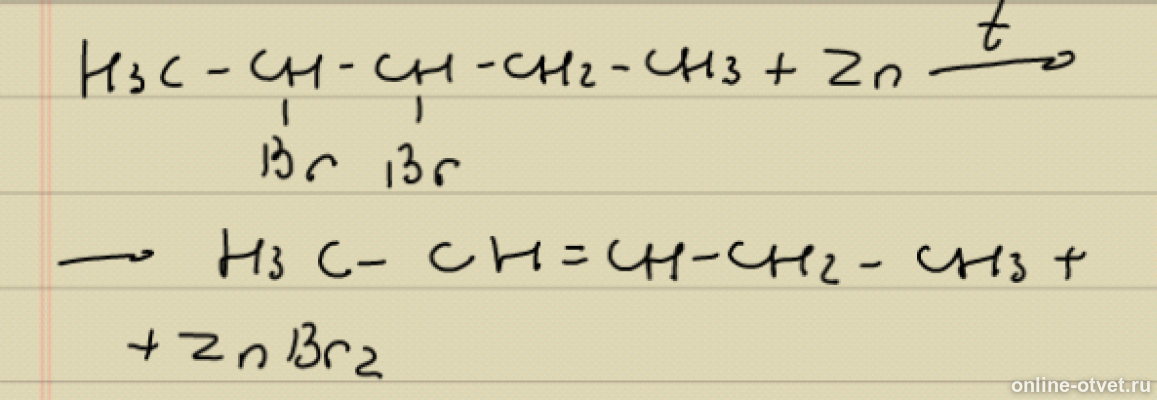 t
H3C - CH - CH - CH2 - CH3 + Zn →
Br Br
→ H3C - CH = CH - CH2 - CH3 +
+ ZnBr2
online-otvet.ru